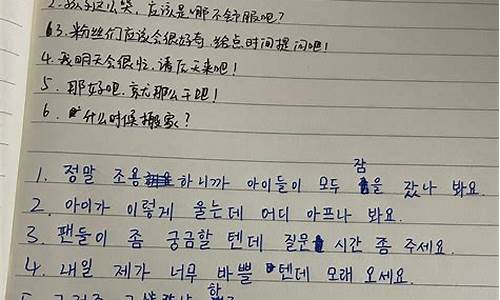 2. 孩子这么哭，应该是哪不舒服吧？
3. 粉丝们应该会很好奇，给点时间提问吧！
4. 我明天会很忙，请后天来吧！
5. 那好吧，就那么干吧！
6. 什么时候搬家？
1. 정말 조용하니까 아이들이 모두 잠을 잤나 봐요.
2. 아이가 이렇게 울는데 어디 아프나 봐요.
3. 팬들이 좀 궁금할 텐데 질문 시간 좀 주세요.
4. 내일 제가 너무 바쁠 텐데 모래 오세요.